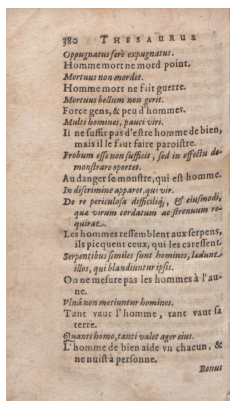 380 THESAURUS
Oppugnatus ferè expugnatus.
Homme mort ne mord point.
Mortuus non mordet.
Homme mort ne fait guerre.
Mortuus bellum non gerit.
Force gens, & peu d'hommes.
Multi homines, pauci viri.
Il ne suffit pas d'estre homme de bien,
mais il le faut faire paroistre.
Probum esse non sufficit, sed in effectu de-
monstrare oportet.
Au danger se monstre, qui est homme.
In discrimine apparet, qui vir.
De re periculosa difficiliq́;, & eiusmodi,
quæ virum cordatum ac strenuum re-
quirat.
Les hommes ressemblent aux serpens,
ils picquent ceux, qui les caressent.
Serpentibus similes sunt homines, lædunt
illos, qui blandiuntur ipsis.
On ne mesure pas les hommes à l'au-
ne.
Vlnâ non metiuntur homines.
Tant vaut l'homme, tant vaut sa
terre.
Quanti homo, tanti valet ager eius.
L'homme de bien aide vn chacun, &
ne nuist à personne.
Bonus